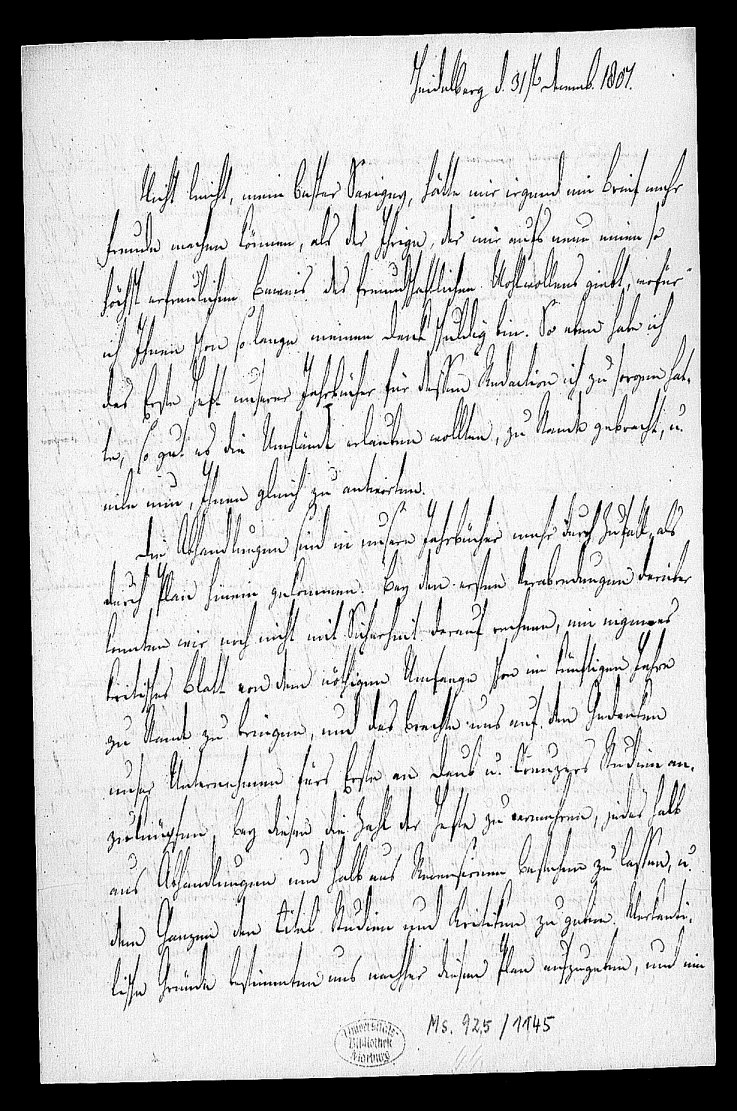 Heidelberg d. 31st Decemb. 1807.
Nicht leicht, mein bester Savigny, hätte mir irgend ein Brief mehr
Freude machen können, als der Ihrige, der mir aufs neue einen so
höchst erfreulichen Beweis des freundschaftlichen Wohlwollens giebt, wofür
ich Ihnen schon so lange meinen Dank schuldig bin. So eben habe ich
das erste Heft unserer Jahrbücher für dessen Redaction ich zu sorgen hat-
te, so gut es die Umstände erlauben wollten, zu Stande gebracht, u.
eile nun, Ihnen gleich zu antworten.
Die Abhandlungen sind in unsere Jahrbücher mehr durch Zufall, als
durch Plan hinein gekommen. Bey den ersten Verabredungen darüber
konnten wir noch nicht mit Sicherheit darauf rechnen, ein eigenes
kritisches Blatt von dem nöthigen Umfange schon im künftigen Jahre
zu Stande zu bringen, und das brachte uns auf den Gedanken
unser Unternehmen fürs erste an Daub u. Creuzers Studien an-
zuknüpfen, bey diesen die Zahl der Hefte zu vermehren, jedes halb
aus Abhandlungen und halb aus Recensionen bestehen zu lassen, u.
dem Ganzen den Titel Studien und Kritiken zu geben. Merkanti-
lische Gründe bestimmten uns nachher diesen Plan aufzugeben, und ein
Universitäts-
Bibliothek
Marburg
Ms. 925/1145